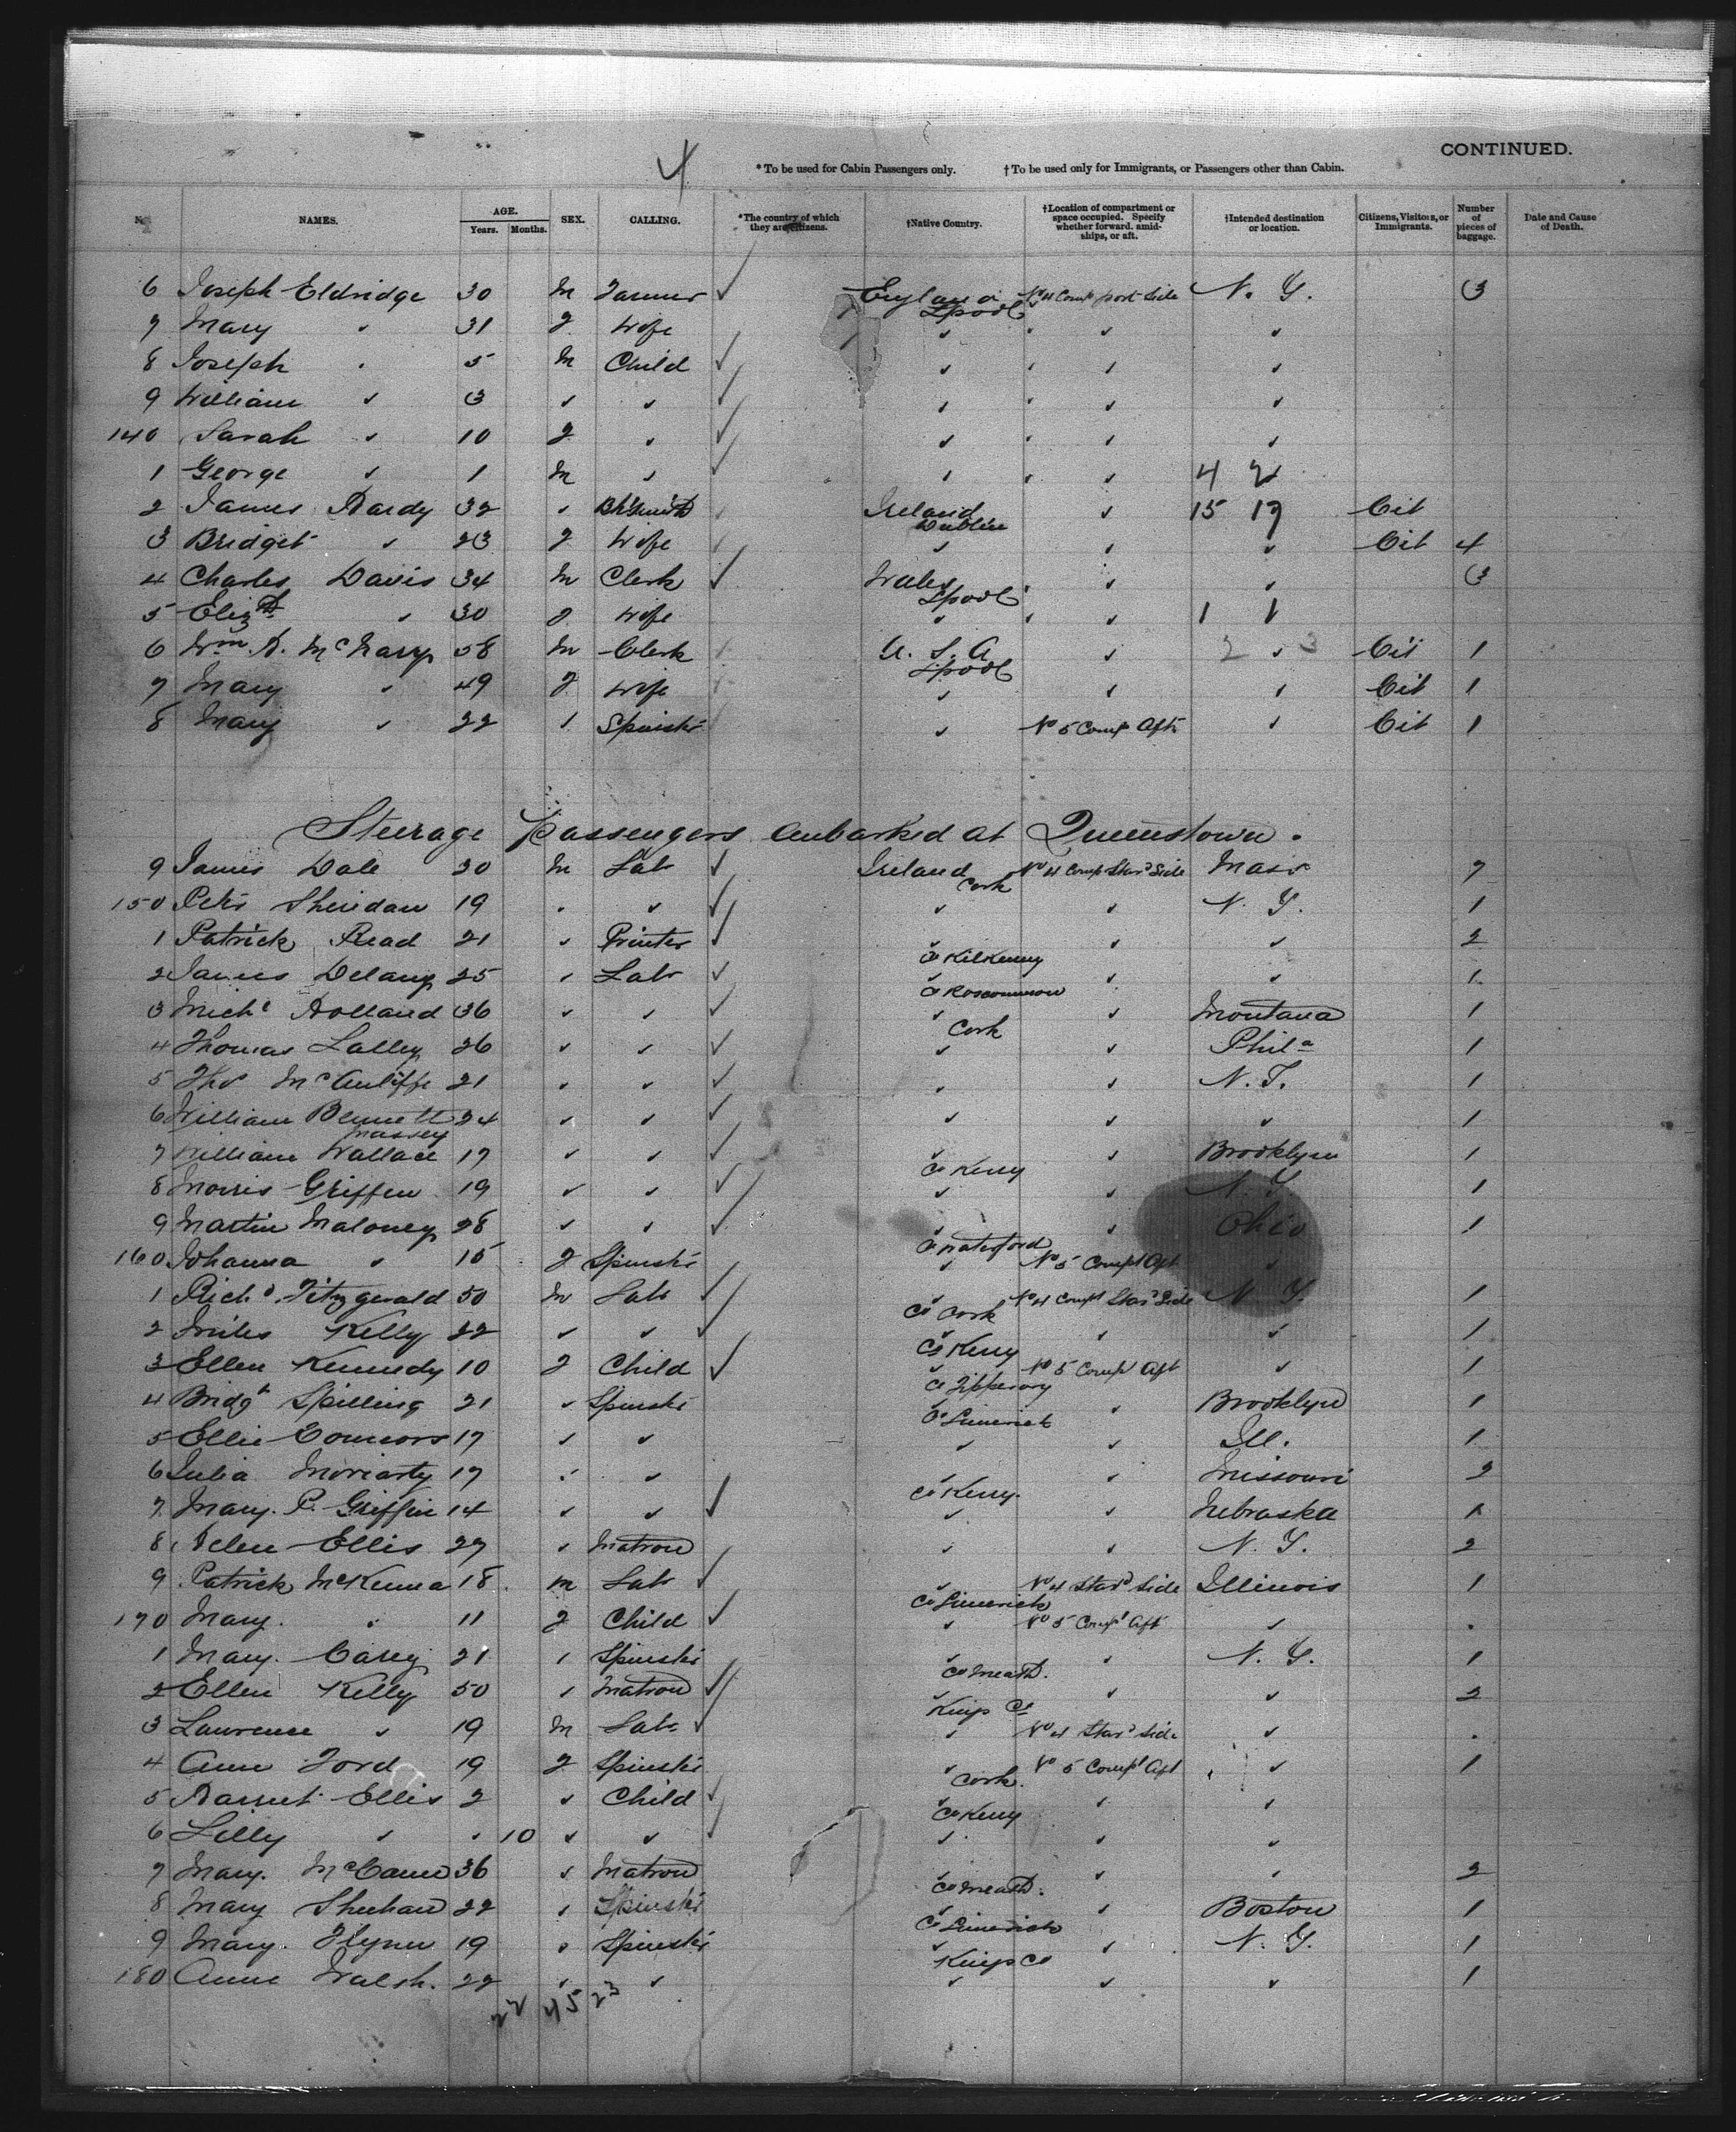 4
CONTINUED.
* To be used for Cabin Passengers only. † To be used only for Immigrants, or Passengers other than Cabin.
No. NAMES. AGE. Years. Months. SEX. CALLING. *The country of which they are citizens. †Native Country. †Location of compartment or space occupied. Specify whether forward, amidships, or aft. †Intended destination or location. Citizens, Visitors, or Immigrants. Number of pieces of baggage. Date and Cause of Death.
6 Joseph Eldridge 30 M Farmer ✓ England Lpool No 4 Comp port Side N. Y. 3
7 Mary " 31 F Wife " " "
8 Joseph " 5 M Child ✓ " " "
9 William " 3 " " ✓ " " "
140 Sarah " 10 F " ✓ " " "
1 George " 1 M " ✓ " " 4 2
2 James Hardy 32 " Bk Smith Ireland Dublin " 15 17 Cit
3 Bridget " 23 F Wife " " " Cit 4
4 Charles Davis 34 M Clerk ✓ Wales Lpool " " 3
5 Elizth " 30 F Wife " " 1 1
6 Wm H. McNary 58 M Clerk U. S. A Lpool " 2 " 3 Cit 1
7 Mary " 49 F Wife " " " Cit 1
8 Mary " 22 " Spinstr " No 5 Comp Aft " Cit 1
Steerage Passengers Embarked at Queenstown.
9 James Dale 30 M Labr ✓ Ireland Cork No 4 Comp Star Side Mass 7
150 Petr Sheridan 19 " " ✓ " " N. Y. 1
1 Patrick Read 21 " Printer ✓ " Co Kilkenny " " 2
2 James Delany 25 " Labr ✓ " Co Roscommon " " 1
3 Michl Holland 36 " " ✓ " Cork " Montana 1
4 Thomas Lalley 26 " " ✓ " " Phila 1
5 Thos McAuliffe 21 " " ✓ " " N. Y. 1
6 William Bennett 24 " " ✓ " " " 1
Massey
7 William Wallace 17 " " ✓ " Co Kerry " Brooklyn 1
8 Morris Griffen 19 " " ✓ " " N. Y. 1
9 Martin Maloney 28 " " ✓ " Co Waterford " Ohio 1
160 Johanna " 15 F Spinstr " No 5 Compt Aft "
1 Richd Fitzgerald 50 M Labr ✓ " Co Cork No 4 Compt Star Side N. Y. 1
2 Miles Kelly 22 " " ✓ " Co Kerry " " 1
3 Ellen Kennedy 10 F Child ✓ " Co Tipperary No 5 Compt Aft " 1
4 Bridgt Spilling 21 " Spinstr " Co Limerick " Brooklyn 1
5 Ellie Connors 17 " " " " Ill. 1
6 Julia Moriarty 17 " " " Co Kerry " Missouri 2
7 Mary. P. Griffin 14 " " ✓ " " Nebraska 1
8 Helen Ellis 27 " Matron " " N. Y. 2
9 Patrick McKenna 18 M Labr ✓ " Co Limerick No 4 Stard Side Illinois 1
170 Mary " 11 F Child ✓ " No 5 Compt Aft "
1 Mary. Carey 21 " Spinstr " Co Meath. " N. Y. 1
2 Ellen Kelly 50 " Matron ✓ " Kings Co " " 2
3 Lawrence " 19 M Labr ✓ " No 4 Stard Side "
4 Anne Ford 19 F Spinstr " Cork. No 5 Compt Aft " 1
5 Harriet Ellis 2 " Child ✓ " Co Kerry " "
6 Lilly " " 10 " " ✓ " " "
7 Mary. McCann 36 " Matron " Co Meath. " " 2
8 Mary Sheehan 22 " Spinstr " Co Limerick " Boston 1
9 Mary. Flynn 19 " Spinstr " Kings Co " N. Y. 1
180 Anne Walsh. 22 " " " " " 1
22 45 23